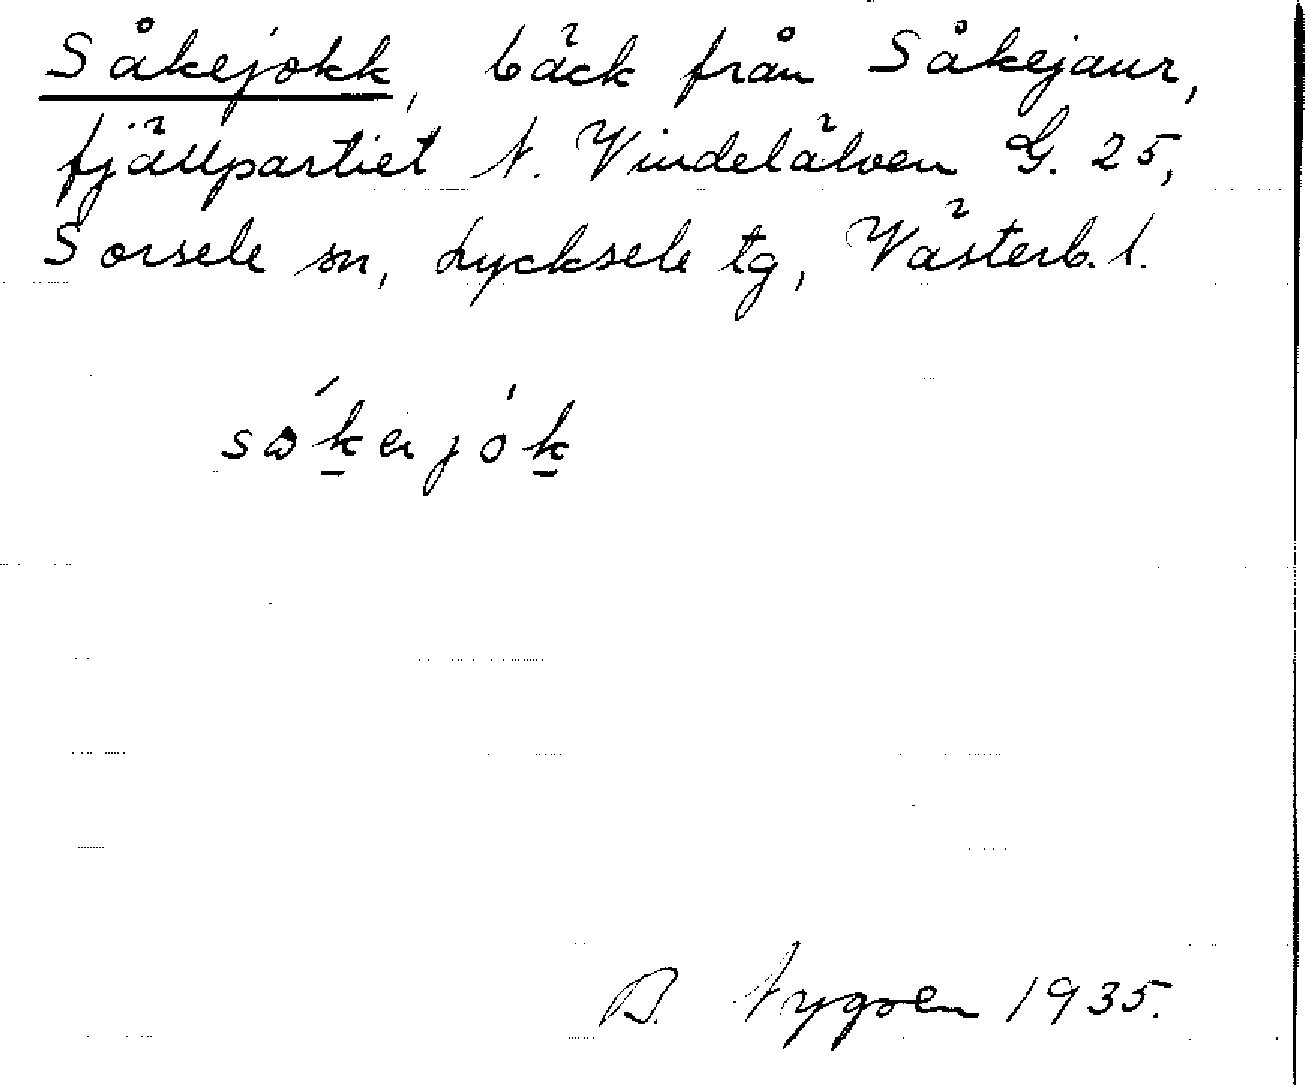 Såkejokk, bäck från Såkejaur,
fjällpartiet N. Vindelälven G. 25,
Sorsele sn, Lycksele tg, Västerb. l.
B. Nygren 1935.